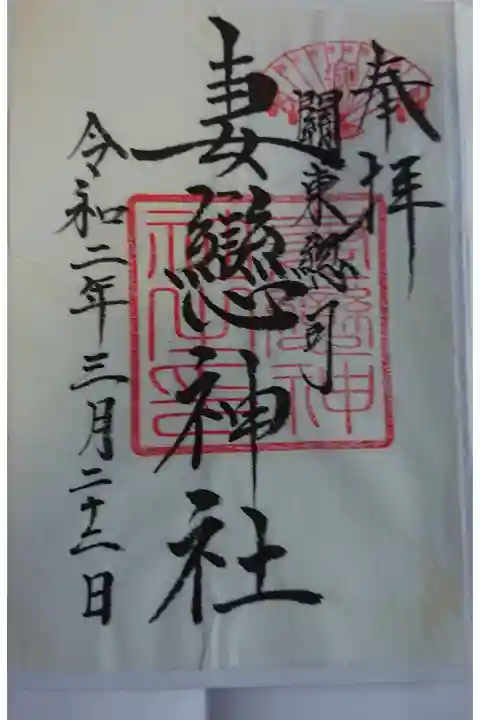 奉拝
關東總司
妻戀神社
令和二年三月二十二日
妻戀神
社之印